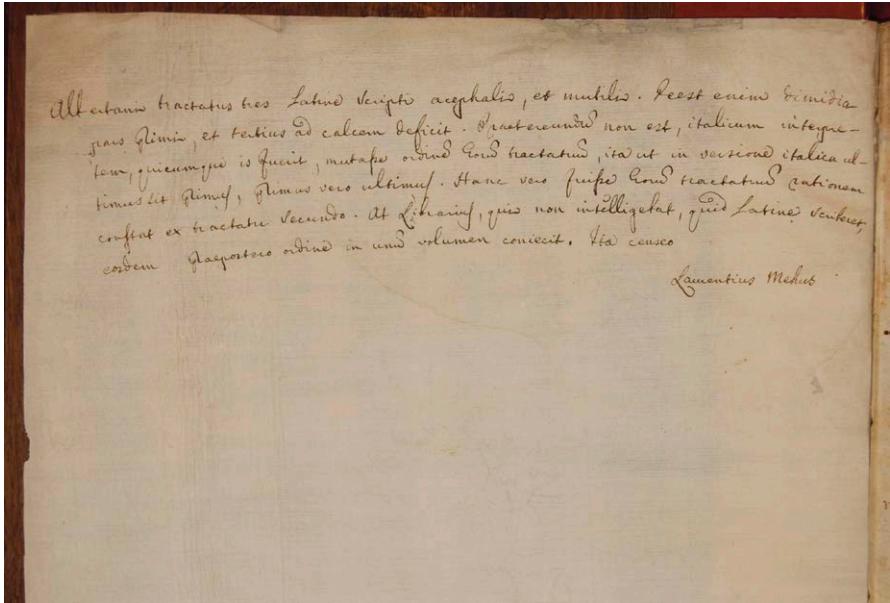 Albertani tractatus tres Latine scripti acephali, et mutili. Deest enim dimidia
pars primi, et tertius ad calcem deficit. Praetereundũ non est, italicum interpre-
tem, quicumque is fuerit, mutasse ordinẽ horũ tractatuũ, ita ut in versione italica ul-
timus sit primus, primus vero ultimus. Hanc vero fuisse horũ tractatuũ rationem
constat ex tractatu secundo. At Librarius, qui non intelligebat, quid Latine scriberet,
eosdem praepostero ordine in unũ volumen coniecit. Ita censeo
Laurentius Mehus